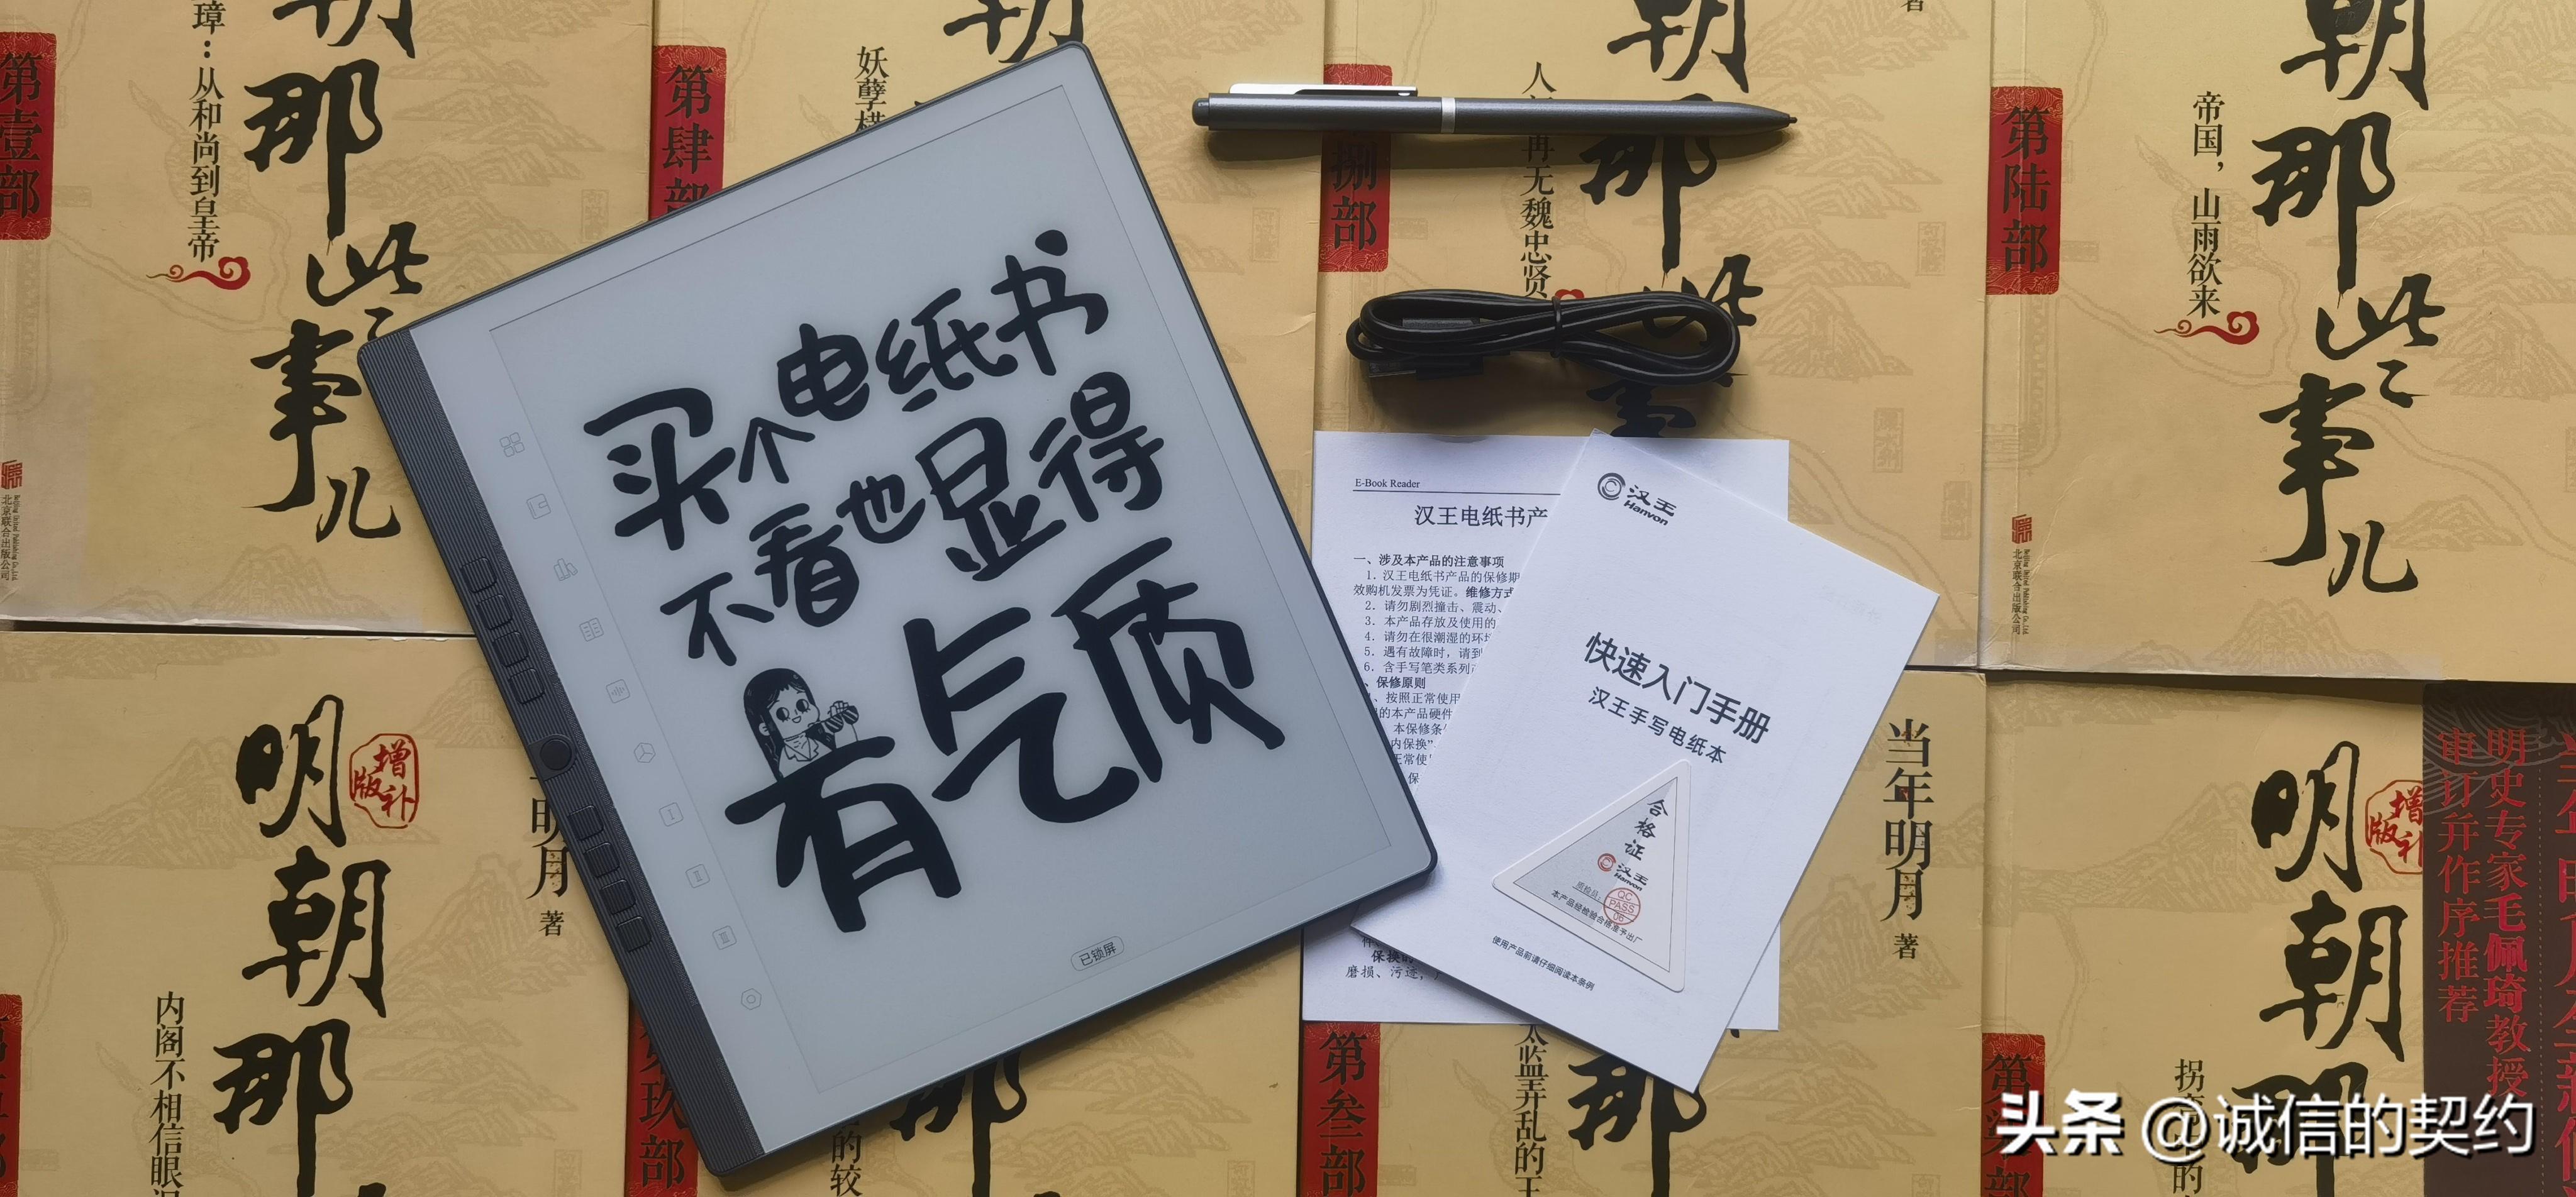 璋：从和尚到皇帝
第壹部
朝
那
些
事
儿
北京联合出版公司
第肆部
妖孽横
朝
第捌部
人
再无魏忠贤
朝
那
些
事
第陆部
帝国，山雨欲来
朝
那
些
事
儿
北京联合出版公司
买个电纸书
不看也显得
有气质
已锁屏
E-Book Reader
汉王电纸书产
一、涉及本产品的注意事项
1. 汉王电纸书产品的保修期
效购机发票为凭证。维修方式
2. 请勿剧烈撞击、震动、
3. 本产品存放及使用的
4. 请勿在很潮湿的环境
5. 遇有故障时，请到
6. 含手写笔类系列产
、保修原则
、按照正常使用
的本产品硬件
本保修条
内保换”
正常使
保
保换的
磨损、污迹，
汉王
Hanvon
快速入门手册
汉王手写电纸本
合格证
汉王
Hanvon
质检员：
QC
PASS
06
本产品经检验合格准予出厂
使用产品前请仔细阅读本条例
明
朝
那
增补版
内阁不相信眼泪
明月
著
第玖部
那
的较
第叁部
太监弄乱的王
那
当年明月
著
明
朝
那
增补版
拐
的
明史专家毛佩琦教授
审订并作序推荐
头条 @诚信的契约